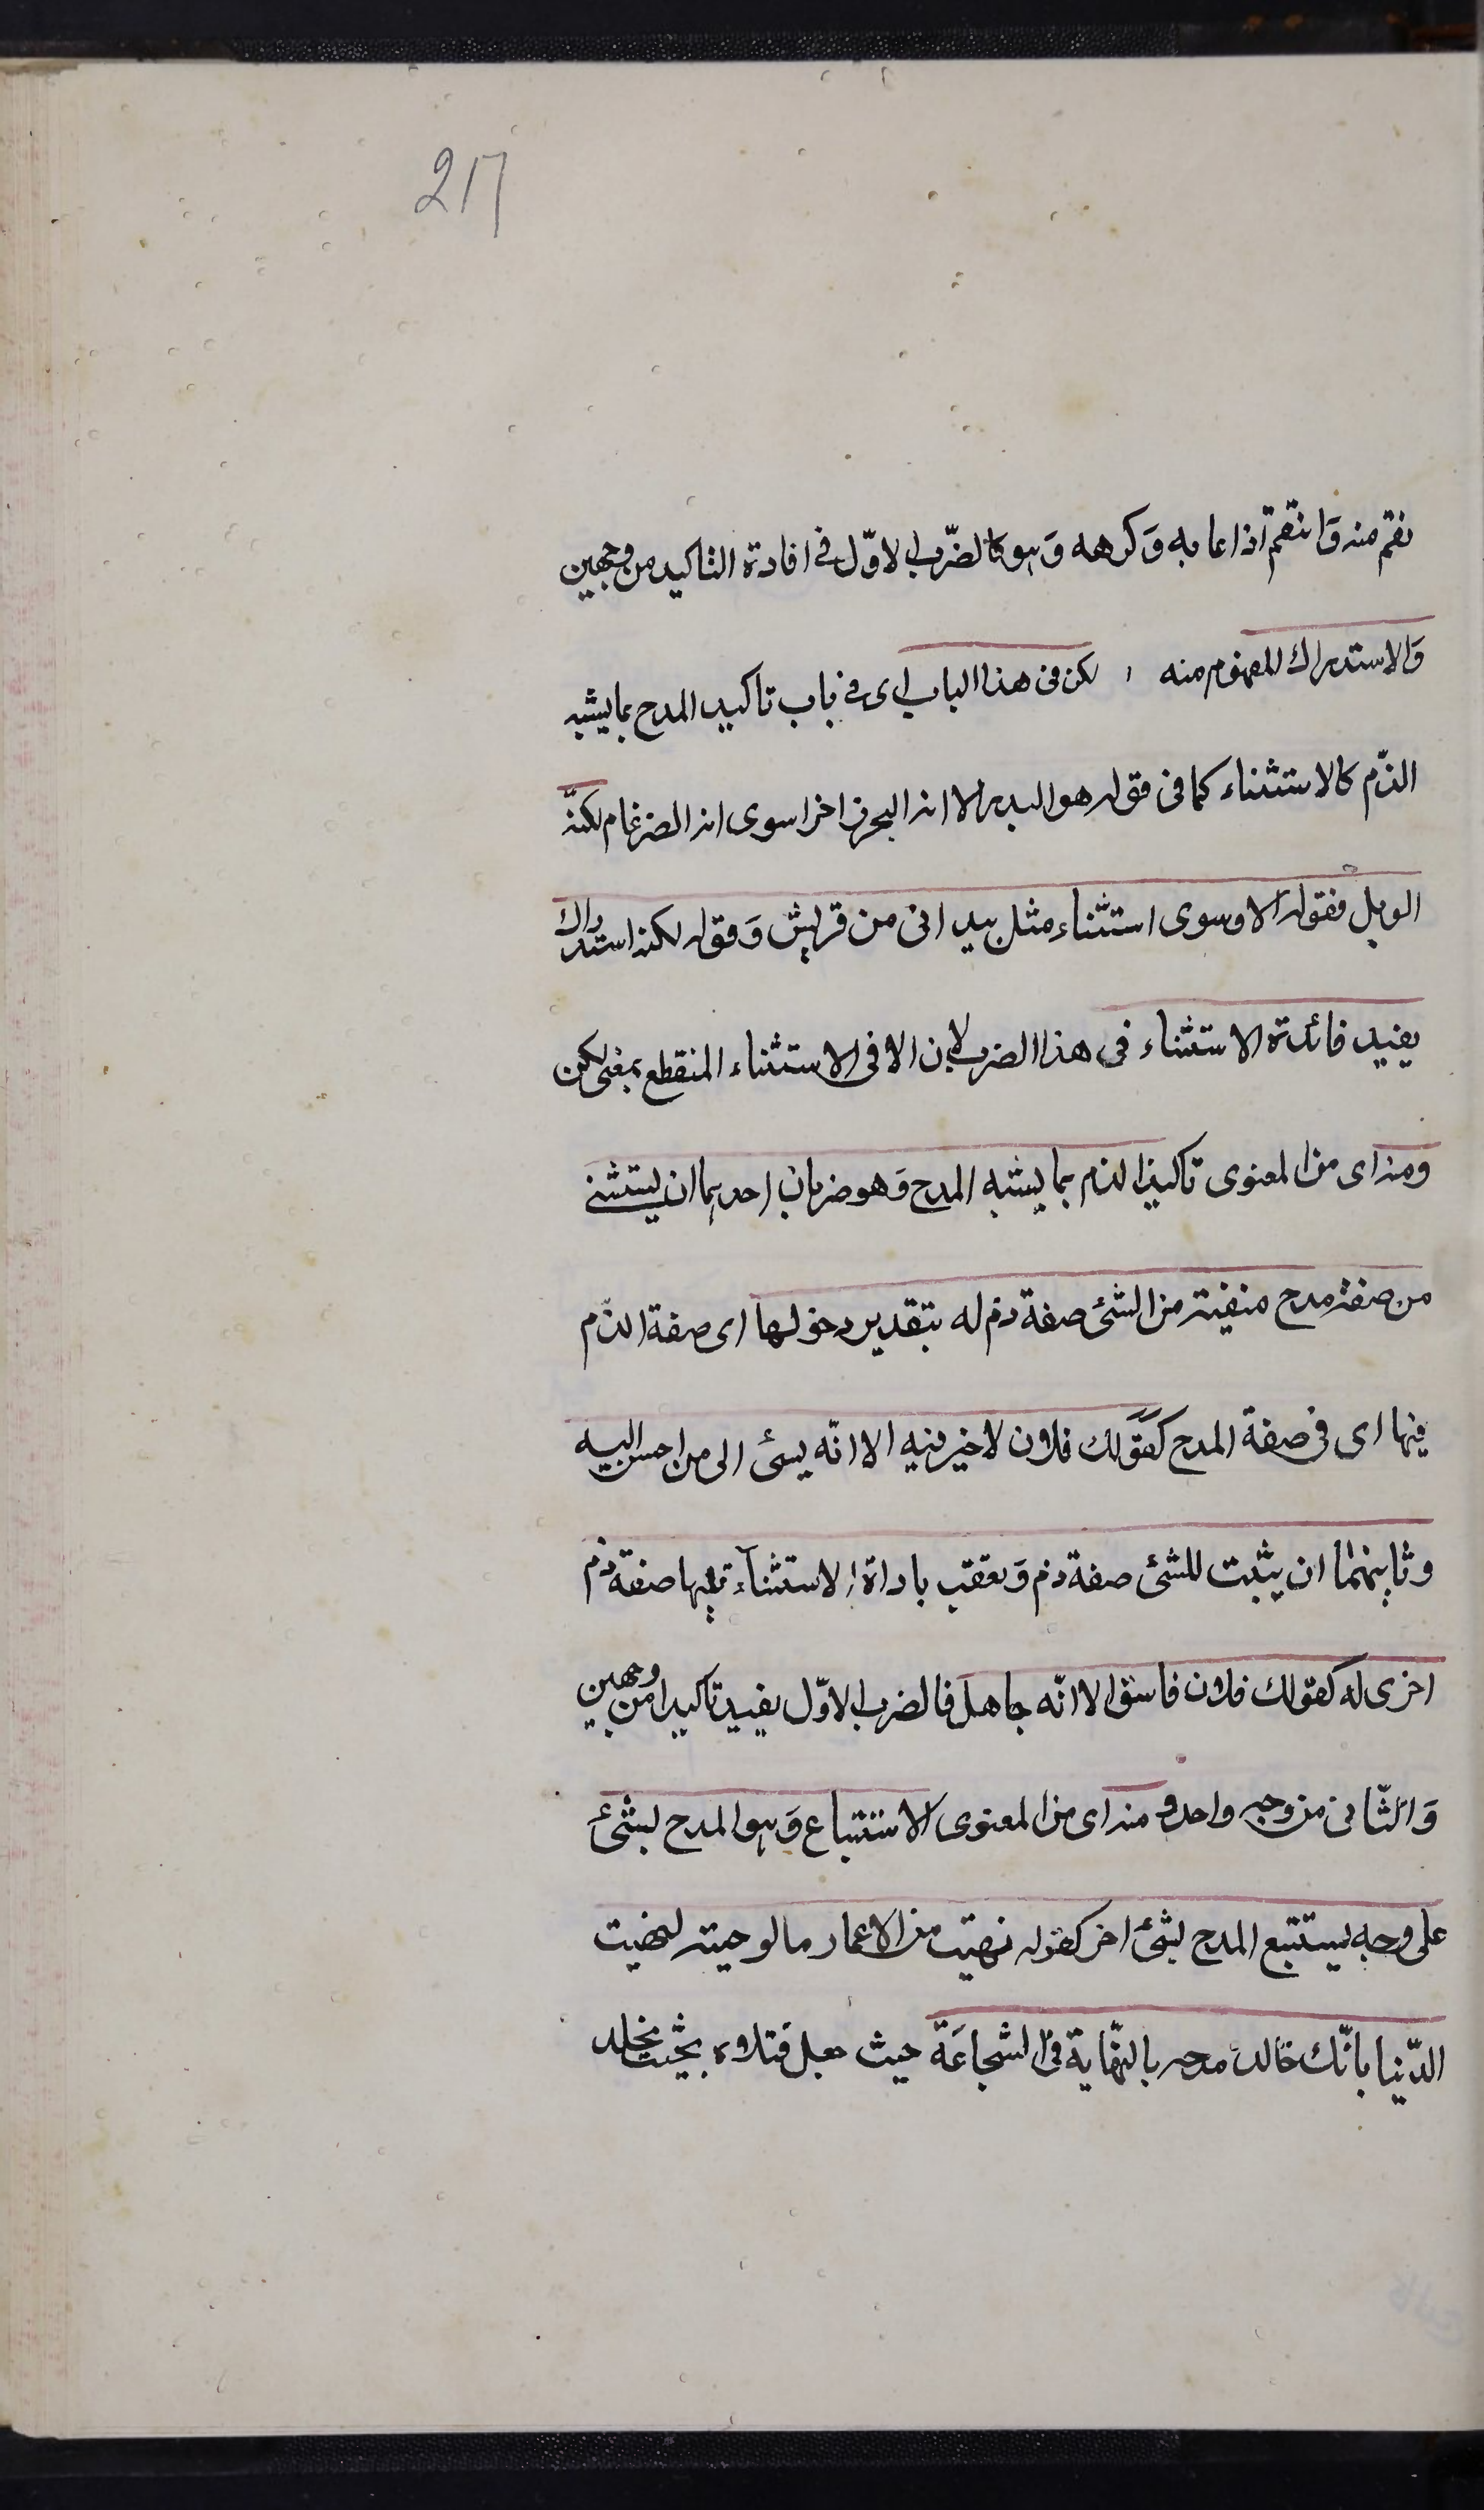 217
نقم منه وَانتقم اذا عابه وَكرهه وَهو كالضّرب الاوّل فى افادة التاكيد من وجهين
وَالاستدراك المفهوم منه لكن فى هذا الباب اى فى باب تاكيد المدح بما يشبه
الذّم كالاستثناء كما فى قوله هو البدر الا انه البحر زاخرا سوى انه الضرغام لكنّه
الوبل فقوله الا وسوى استثناء مثل بيد انى من قريش وَقوله لكنه استدراك
يفيد فائدة الاستثناء فى هذا الضرب لان الا فى الاستثناء المنقطع بمعنى لكن
ومنه اى من المعنوى تاكيد الذم بما يشبه المدح وَهو ضربان احدهما ان يستثنى
من صفة مدح منفية من الشئ صفة ذم له بتقدير دخولها اى صفة الذّم
فيها اى فى صفة المدح كقَولك فلان لا خير فيه الا انّه يسئ الى من احسن اليه
وثانيهما ان يثبت للشئ صفة ذم وَيعقب باداة الاستثنآء تليها صفة ذم
اخرى له كقولك فلان فاسق الا انّه جاهل فالضرب الاوّل يفيد تاكيدا من وجهين
وَالثّانى من وجه واحد ومنه اى من المعنوى الاستتباع وَهو المدح بشئ
على وجه يستتبع المدح بشئ اخر كقوله نهبت من الاعمار ما لو حويته لهنيت
الدّنيا بانّك خالد مدحه بالنّهاية فى الشجاعَة حيث جعل قتلاه بحيث يخلد